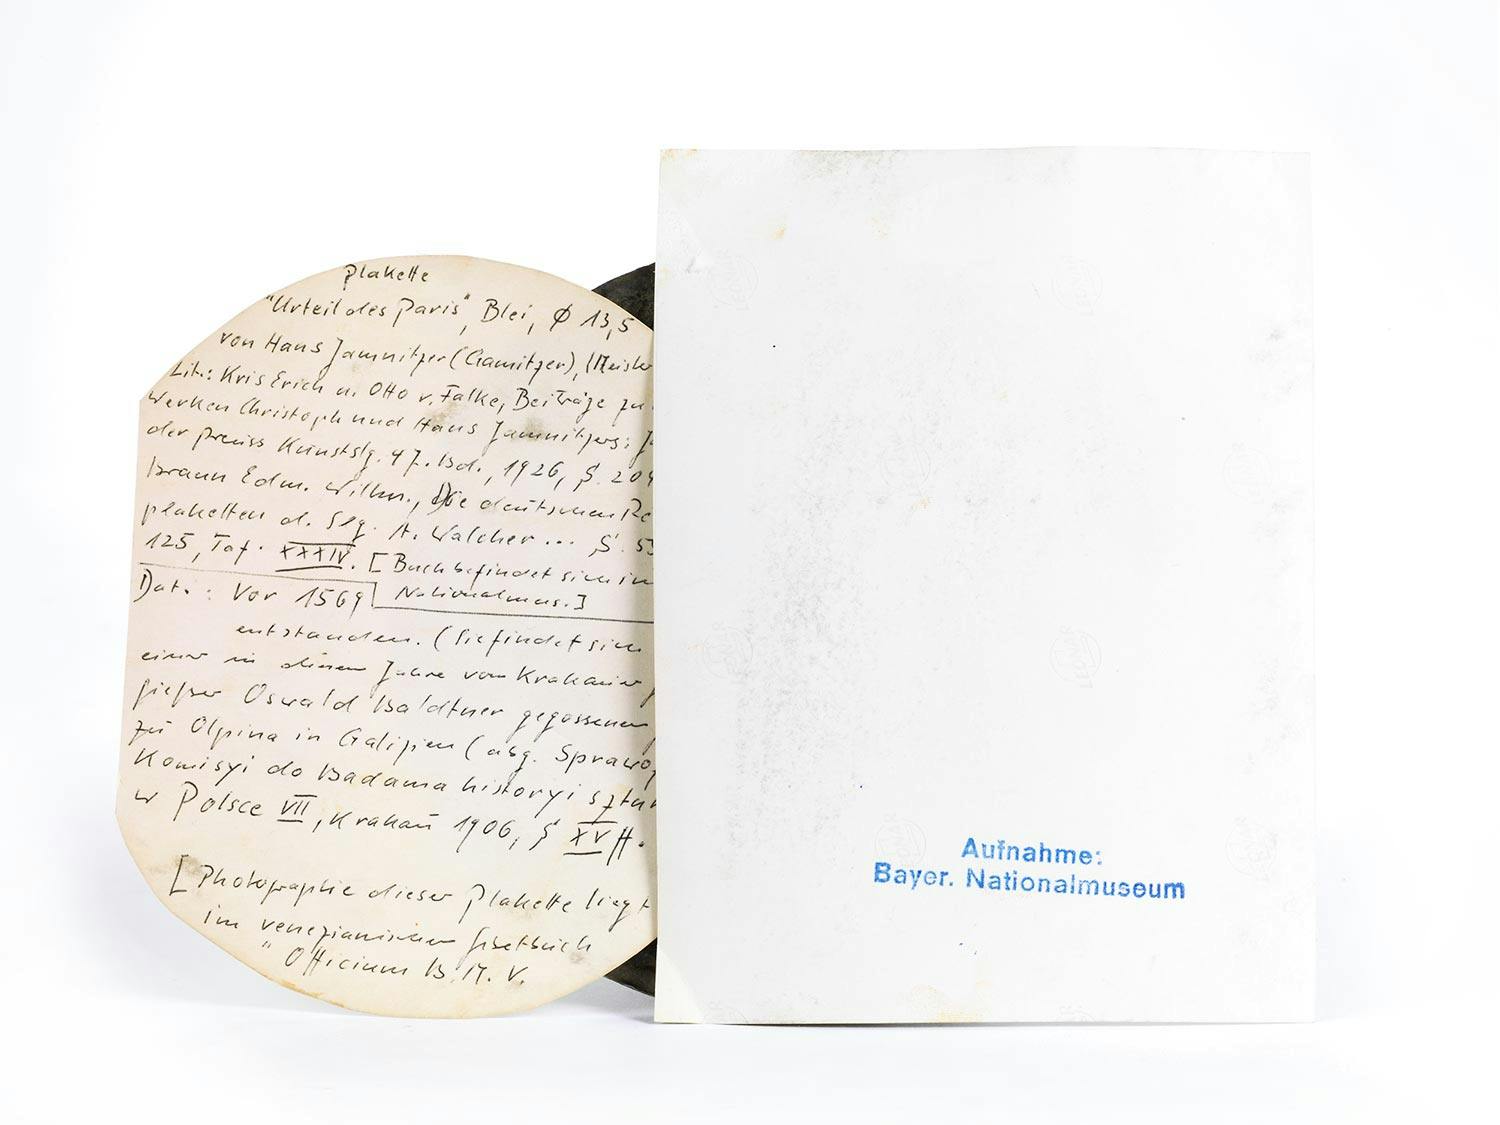 Plakette
"Urteil des Paris", Blei, Ø 13,5
von Hans Jamnitzer (Gamitzer), (Meister
Lit.: Kris Erich u. Otto v. Falke, Beiträge zu
Werken Christoph und Hans Jamnitzers: J
der preuss Kunstslg. 47. Bd., 1926, S. 20
Braun Edm. Wilhm., Die deutschen Re
plaketten d. Slg. A. Walcher ... S. 5
125, Taf. XXXIV. [Buch befindet sich im
Nationalmus.]
Dat.: Vor 1569
entstanden. (Sie findet sich
einer in diesem Jahre vom Krakauer
gießer Oswald Baldtner gegossenen
zu Olpina in Galizien (abg. Sprawo
Komisyi do Badama historyi sztu
w Polsce VII, Krakau 1906, S XV ff.
[Photographie dieser Plakette liegt
im venezianischen Gebetbuch
"Officium B. M. V.
Aufnahme:
Bayer. Nationalmuseum